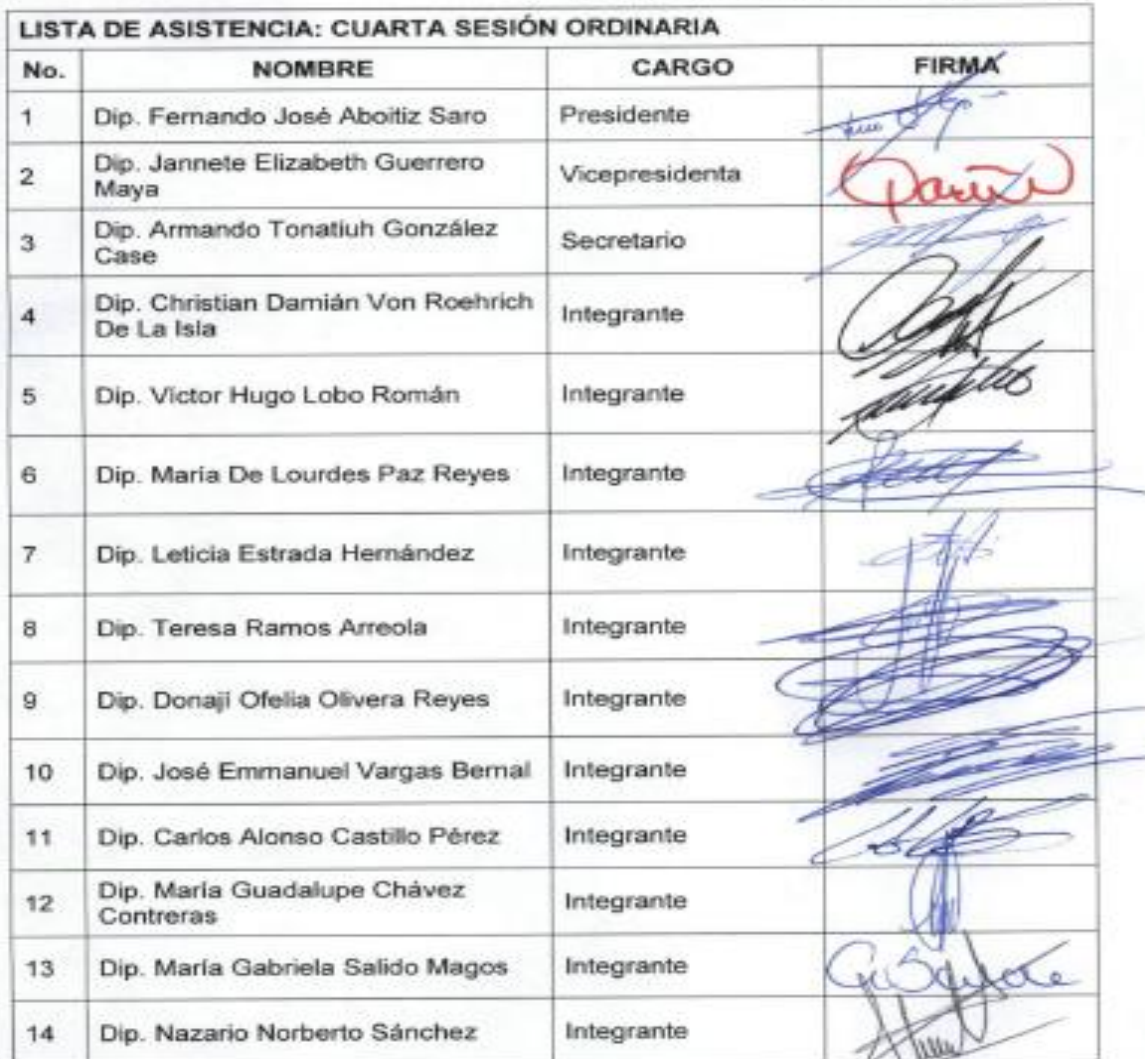 LISTA DE ASISTENCIA: CUARTA SESIÓN ORDINARIA
No. NOMBRE CARGO FIRMA
1 Dip. Fernando José Aboitiz Saro Presidente
2 Dip. Jannete Elizabeth Guerrero Vicepresidenta
Maya
3 Dip. Armando Tonatiuh González Secretario
Case
4 Dip. Christian Damián Von Roehrich Integrante
De La Isla
5 Dip. Víctor Hugo Lobo Román Integrante
6 Dip. María De Lourdes Paz Reyes Integrante
7 Dip. Leticia Estrada Hernández Integrante
8 Dip. Teresa Ramos Arreola Integrante
9 Dip. Donaji Ofelia Olivera Reyes Integrante
10 Dip. José Emmanuel Vargas Bernal Integrante
11 Dip. Carlos Alonso Castillo Pérez Integrante
12 Dip. María Guadalupe Chávez Integrante
Contreras
13 Dip. María Gabriela Salido Magos Integrante
14 Dip. Nazario Norberto Sánchez Integrante